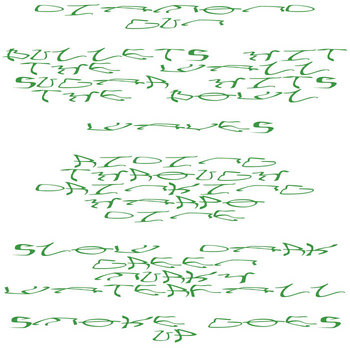 DIAMOND
GUN
BULLETS HIT
THE WALL
SUGAR HITS
THE BOWL
WAVES
RIDING
THROUGH
DRINKING
HARD
SLOW DARK
GREEN
MURKY
WATERFALL
SMOKE GOES
UP